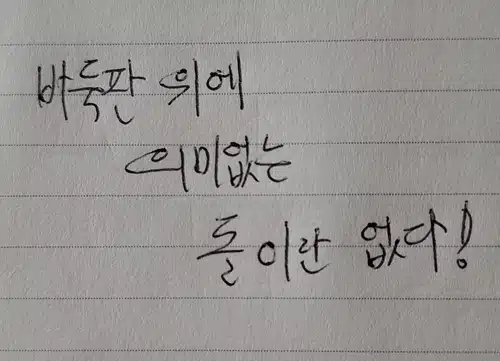 바둑판 위에
의미없는
돌이란 없다!